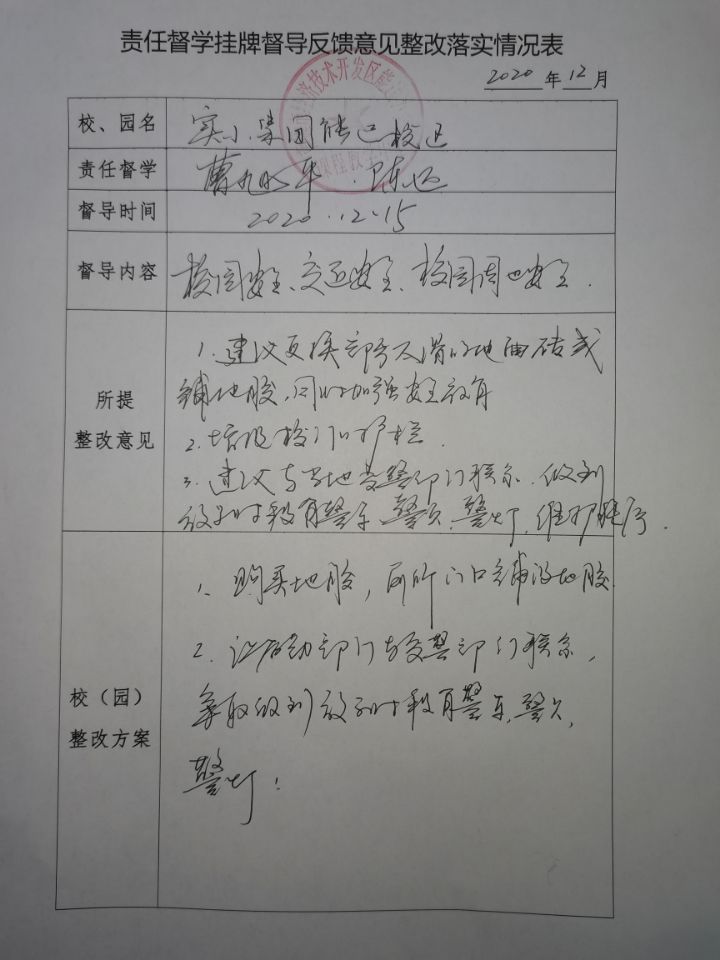 责任督学挂牌督导反馈意见整改落实情况表
2020年12月
济技术开发区能
校、园名 实小集团能达校区
责任督学
督导时间 2020.12.15
督导内容 校园安全、交通安全、校园周边安全.
所提
整改意见
1.建议更换部分太滑的地面砖或
铺地胶,同时加强安全教育
2.增设校门口护栏.
3.建议与当地交警部门联系.做到
放学时段有警车.警员.警灯.维护秩序.
校（园）
整改方案
1、购买地胶，厕所门口铺设地胶.
2.让后勤部门与交警部门联系,
争取做到放学时段有警车.警员,
警灯!